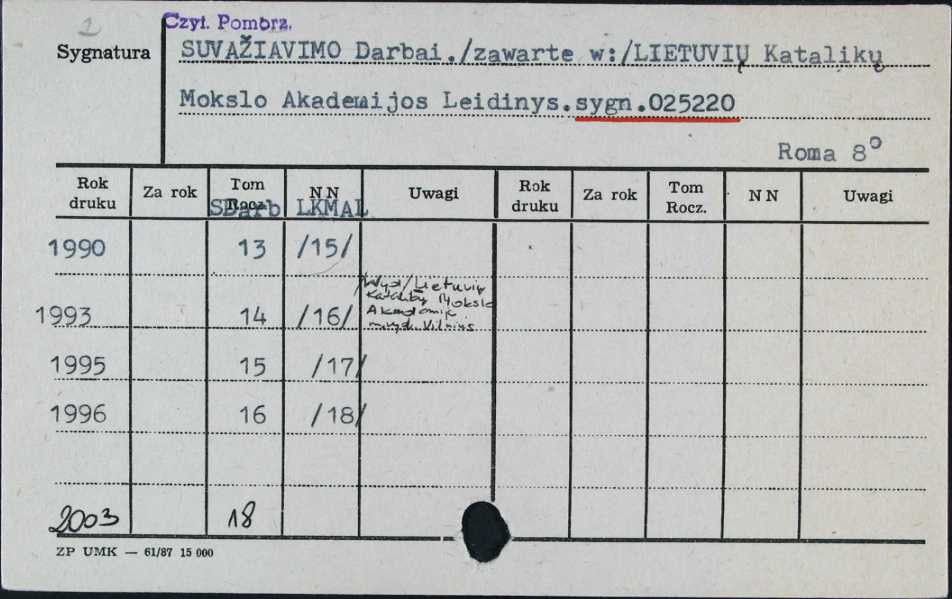 2
Czyt. Pomorz.
Sygnatura
SUVAŽIAVIMO Darbai./zawarte w:/LIETUVIŲ Katalikų
Mokslo Akademijos Leidinys.sygn.025220
Roma 8°
Rok druku Za rok Tom Rocz. NN Uwagi Rok druku Za rok Tom Rocz. NN Uwagi
SDarb LKMAL
1990 13 /15/
/Wyd/Lietuvių
Mokslo
1993 14 /16/ Akademija
Vilnius
1995 15 /17/
1996 16 /18/
2003 18
ZP UMK — 61/87 15 000